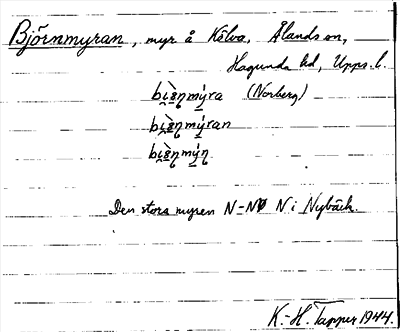 Björnmyran, myr å Kölva, Ålands sn,
Hagunda hd, Upps. l.
bi̯èn̥mýra (Norberg)
bi̯èn̥mýran
bi̯èn̥mýn̥
Den stora myren N–NV N i Nybäck.
K.-H. Tapper 1944.